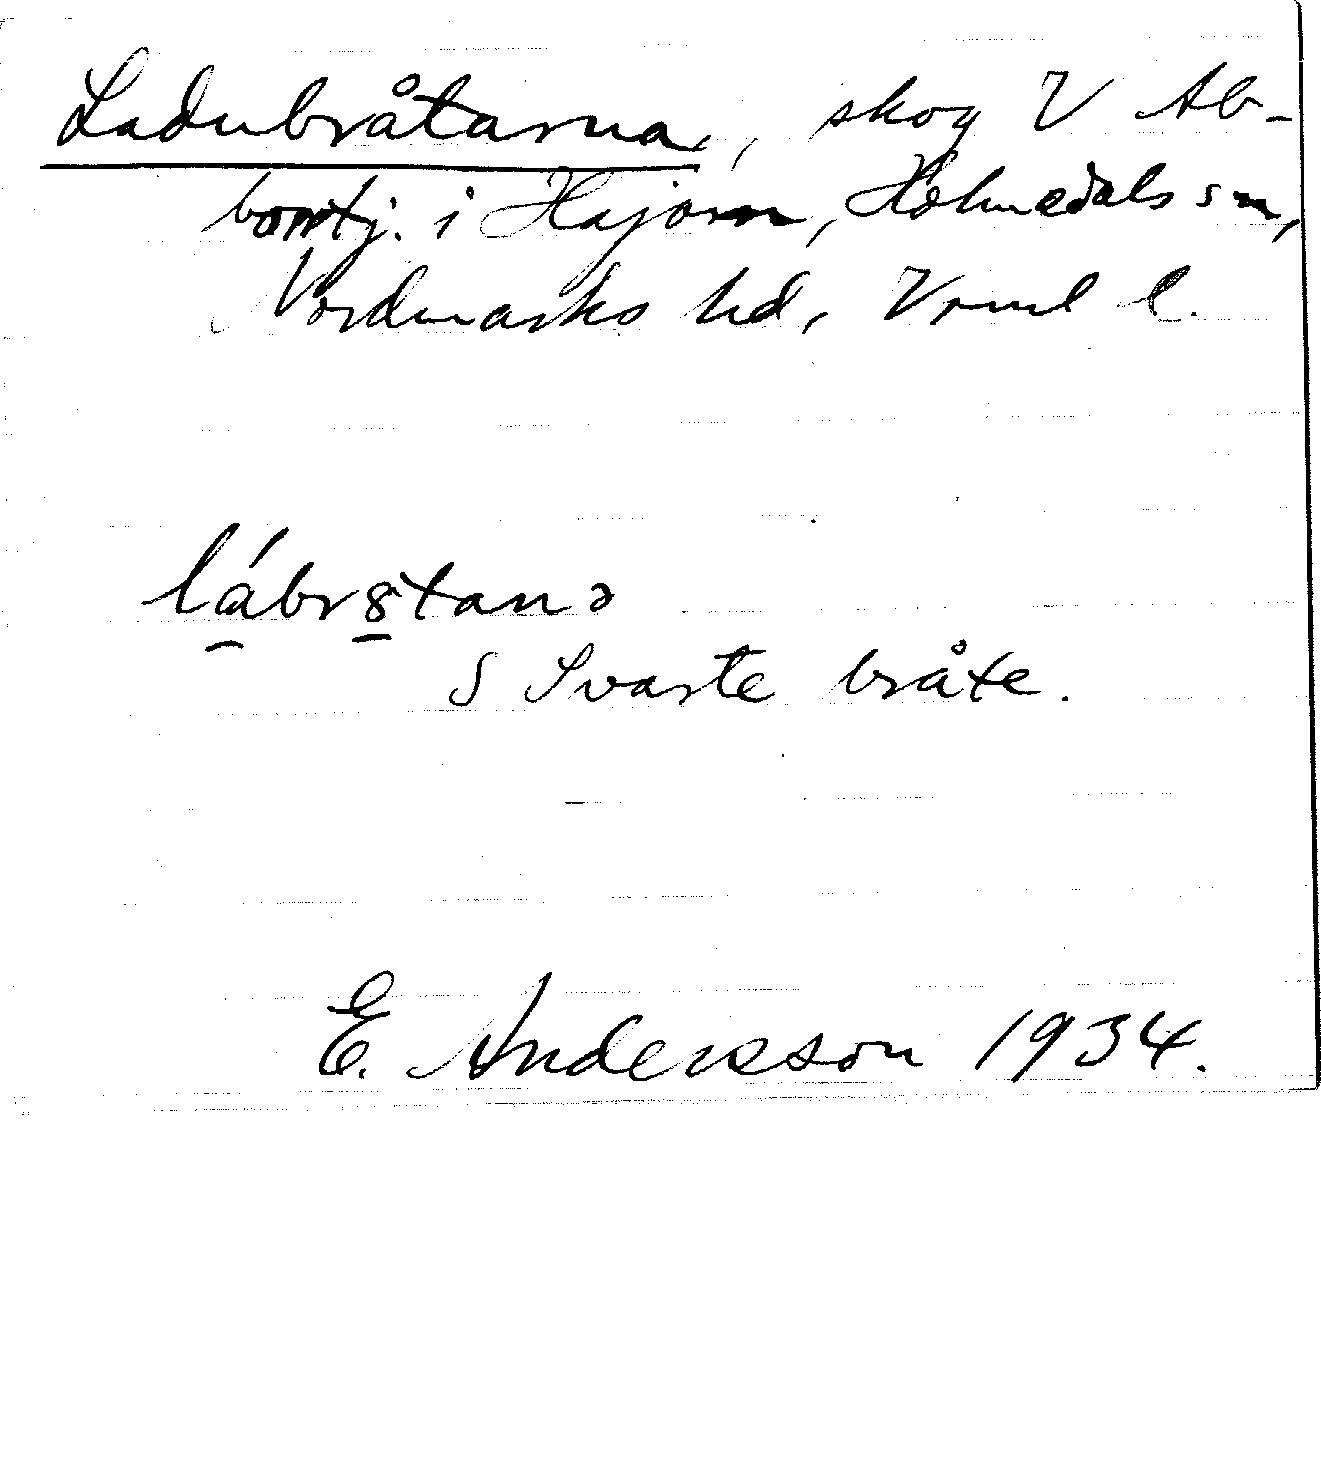 Ladubråtarna, skog V Ab-
borttj. i Hajom, Holmedals sn,
Nordmarks hd, Vrml l.
lábr8tanə
S Svarte bråte.
E. Andersson 1934.